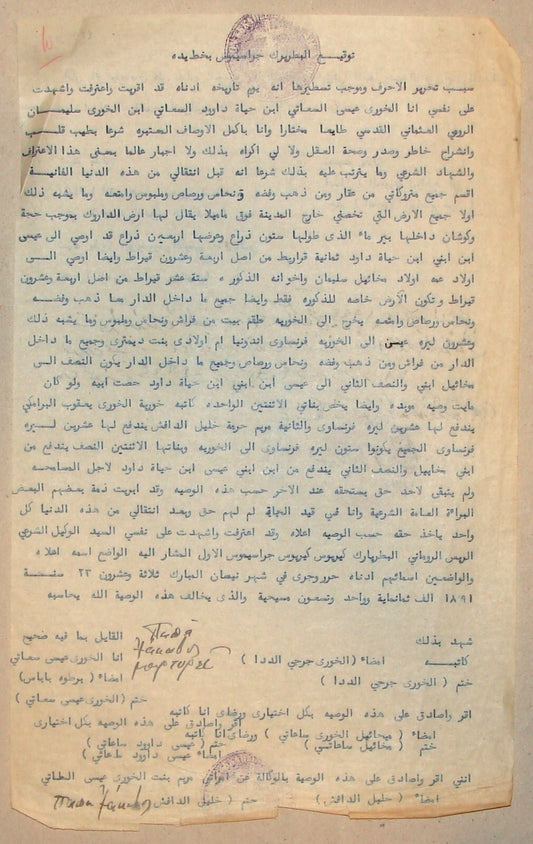 توقيع البطريرك جراسيموس بخط يده
سبب تحرير الاحرف وموجب تسطيرها انه يوم تاريخه ادناه قد اقريت واعترفت واشهدت
على نفسي انا الخورى عيسى الساعاتي ابن حياة داوود السعاتي ابن الخورى سليمان
الرومي العثماني القدسي طايعا مختارا وانا باكمل الاوصاف المعتبره شرعا بطيب قلب
وانشراح خاطر وصدر وصحة العقل ولا لي اكراه بذلك ولا اجبار عالما بمعنى هذا الاعتراف
والشهاد الشرعي وما يترتب عليه بذلك شرعا انه قبل انتقالي من هذه الدنيا الفانية
اقسم جميع متروكاتي من عقار ومن ذهب وفضه ونحاس ورصاص وملبوس وامتعه وما يشبه ذلك
اولا جميع الارض التي تخصني خارج المدينة فوق ماميلا يقال لها ارض الداروك بموجب حجة
وكوشان داخلها بير ماء الذى طولها ستون ذراع وعرضها اربعين ذراع قد اوصي الى عيسى
ابن ابني ابن حياة داود ثمانية قراريط من اصل اربعة وعشرون قيراط وايضا اوصي الى
اولاد عمه اولاد مخائيل سليمان واخوانه الذكور ستة عشر قيراط من اصل اربعة وعشرون
قيراط وتكون الأرض خاصه للذكوره فقط وايضا جميع ما داخل الدار مما ذهب وفضه
ونحاس ورصاص وامتعه يخرج الى الخوريه طقم بيت من فراش ونحاس وملبوس وما يشبه ذلك
وعشرون ليره الى الخوريه فرنساوى اندونيا ام اولادى بنت ديمترى وجميع ما داخل
الدار من فراش ومن ذهب وفضه ونحاس ورصاص وجميع ما داخل الدار يكون النصف الى
مخائيل ابني والنصف الثاني الى عيسى أبن ابني ابن حياة داود حصت ابيه ولو كان
مايت وصيه موبده وايضا يخص بناتي الاثنتين الواحده كاتبه خورية الخورى يعقوب البرامكي
يندفع لها عشرين ليره فرنساوى والثانية مريم حرمة خليل الدافش يندفع لها عشرين ليره
فرنساوى الجميع يكونوا ستون ليره فرنساوى الى الخوريه وبناتها الاثنتين النصف يندفع من
ابني خاييل والنصف الثاني يندفع من ابن ابني عيسى ابن حياة داود لاجل المسامحه
ولم يتبقى لاحد حق يستحقه عند الاخر حسب هذه الوصيه وقد ابريت ذمة بعضهم البعض
البراءة العامة الشرعية وانا في قيد الحياة لم لهم حق وبعد انتقالي من هذه الدنيا كل
واحد ياخذ حقه حسب الوصيه اعلاه وقد اعترفت واشهدت على نفسي السيد الوكيل الشرعي
الريس الروماني البطريارك كيريوس كيريوس جراسيموس الاول المشار اليه الواضع اسمه اعلاه
والواضعين اسمائهم ادناه حرر وجرى في شهر نيسان المبارك ثلاثة وعشرون ٢٣ سنة
١٨٩١ الف ثمانماية وواحد وتسعون مسيحية والذى يخالف هذه الوصية الله يحاسبه
شهد بذلك
القايل بما فيه صحيح
كاتبه امضاء (الخورى جرجي الددا)
انا الخورى عيسى سعاتي
ختم (الخورى جرجي الددا)
امضاء (برطوه باباس)
ختم (الخورى عيسى سعاتي)
اقر واصادق على هذه الوصيه بكل اختيارى ورضاى انا كاتبه
اقر واصادق على هذه الوصيه بكل اختيارى
امضاء (ميخائيل الخورى ساعاتي)
ورضاى انا كاتبه
ختم (مخائيل ساعاتسي)
ختم (عيسى داوود ساعاتي)
امضاء عيسى داوود ساعاتي)
انني اقر واصادق على هذه الوصية بالوكالة عن امراتي مريم بنت الخورى عيسى
امضاء (خليل الدافش)
ختم (خليل الدافش)